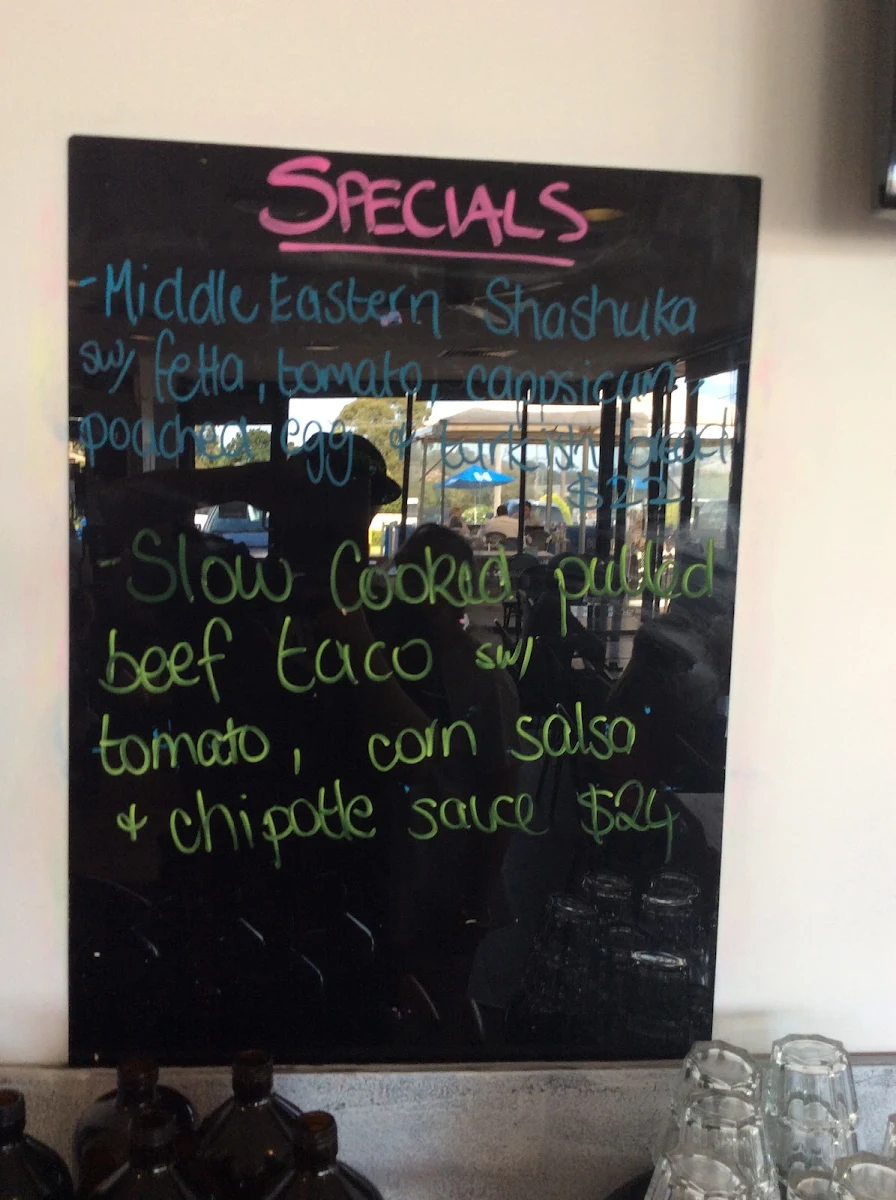 SPECIALS
- Middle Eastern Shashuka
sw/ fetta, tomato, cappsicum,
poached egg & turkish bread
$22
Slow Cooked pulled
beef taco sw/
tomato, corn salsa
& chipotle sauce $24